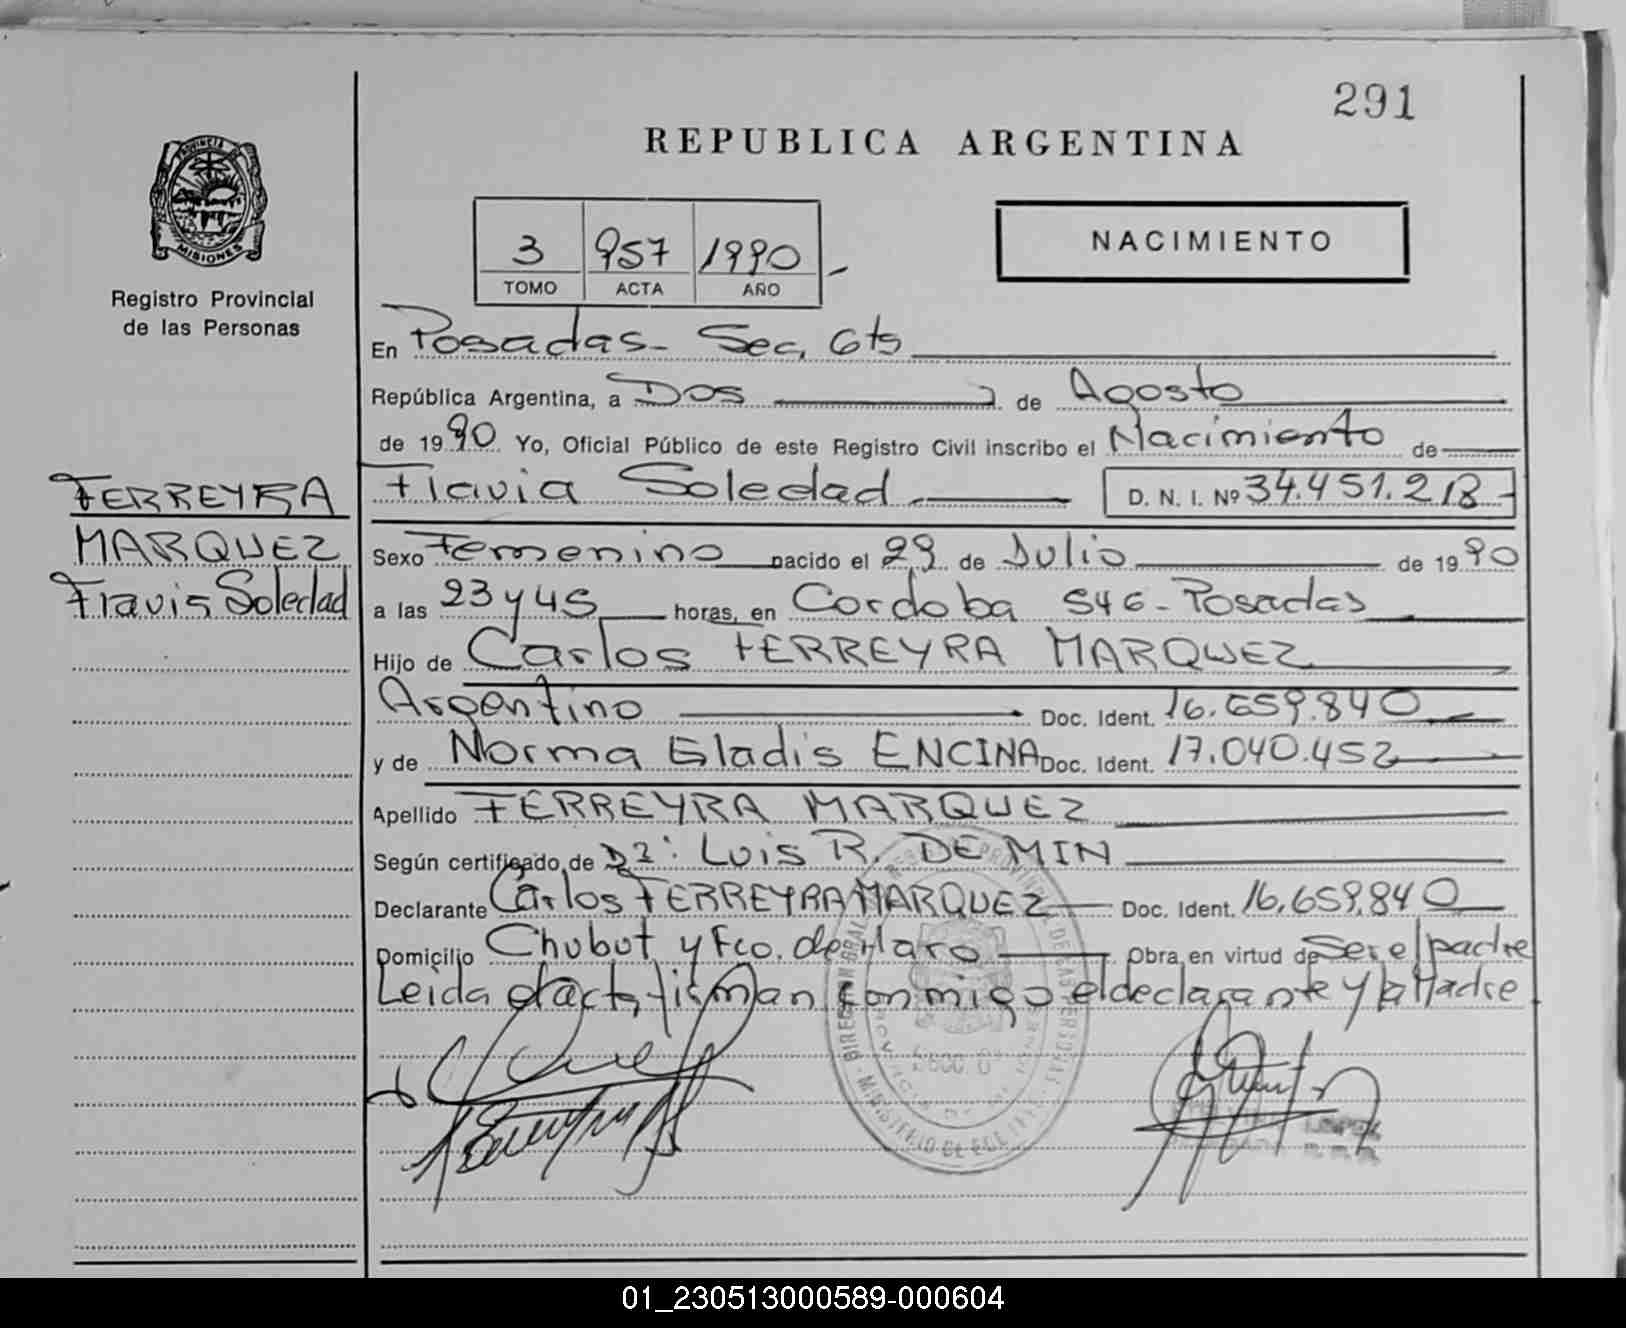 291
REPUBLICA ARGENTINA
PROVINCIA DE
MISIONES
Registro Provincial
de las Personas
3 957 1990
TOMO ACTA AÑO
NACIMIENTO
En Posadas - Sec. 6ta
República Argentina, a Dos de Agosto
de 1990 Yo, Oficial Público de este Registro Civil inscribo el Nacimiento de
FERREYRA
MARQUEZ
Flavia Soledad
Flavia Soledad D. N. I. Nº 34.451.218
Sexo Femenino nacido el 29 de Julio de 1990
a las 23 y 45 horas, en Cordoba 546 - Posadas
Hijo de Carlos FERREYRA MARQUEZ
Argentino Doc. Ident. 16.659.840
y de Norma Gladis ENCINA Doc. Ident. 17.040.452
Apellido FERREYRA MARQUEZ
Según certificado de Dr: Luis R. DE MIN
Declarante Carlos FERREYRA MARQUEZ Doc. Ident. 16.659.840
Domicilio Chubut y Fco. de Haro Obra en virtud de Ser el padre
Leida el acta, firman conmigo el declarante y la Madre
01_230513000589-000604